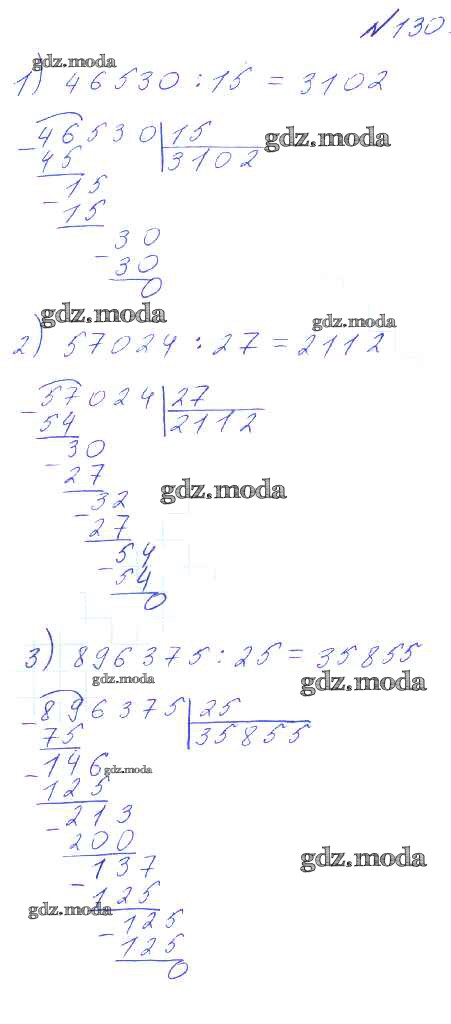 №130.
gdz.moda
1) 46530 : 15 = 3102
46530 | 15
gdz.moda
− 45 | 3102
15
− 15
30
− 30
0
gdz.moda
gdz.moda
2) 57024 : 27 = 2112
57024 | 27
− 54 | 2112
30
− 27
gdz.moda
32
− 27
54
− 54
0
3) 896375 : 25 = 35855
gdz.moda
gdz.moda
896375 | 25
− 75 | 35855
146
gdz.moda
− 125
213
− 200
gdz.moda
137
− 125
gdz.moda
125
− 125
0